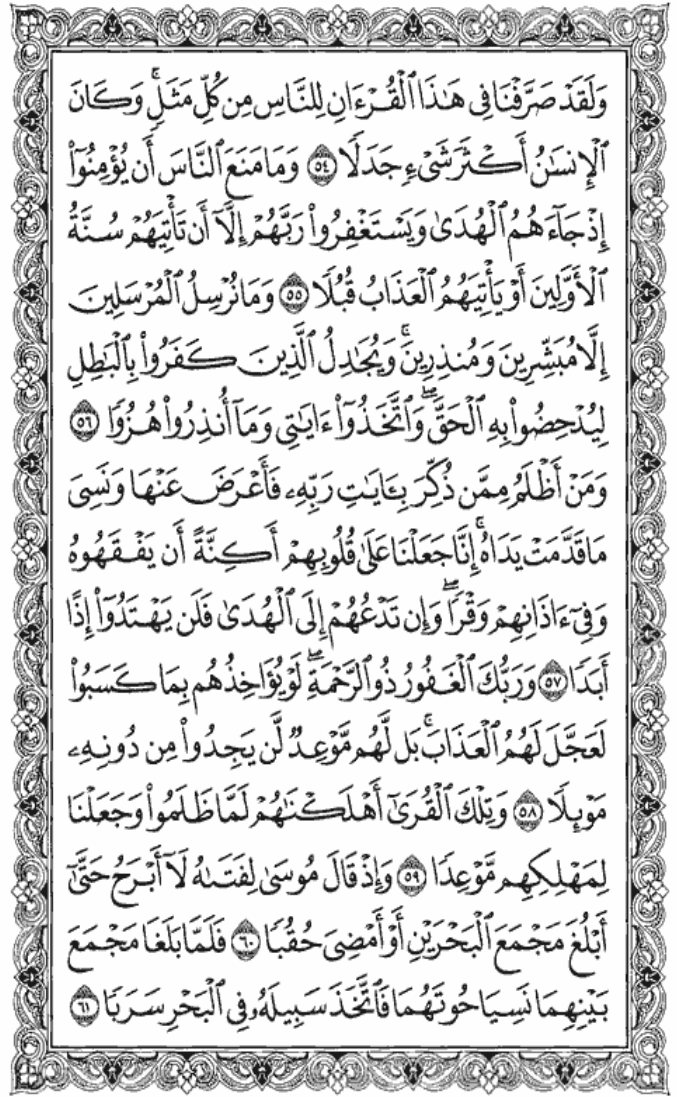 وَلَقَدْ صَرَّفْنَا فِى هَـٰذَا ٱلْقُرْءَانِ لِلنَّاسِ مِن كُلِّ مَثَلٍۚ وَكَانَ
ٱلْإِنسَـٰنُ أَكْثَرَ شَىْءٍ جَدَلًا ٥٤ وَمَا مَنَعَ ٱلنَّاسَ أَن يُؤْمِنُوٓا۟
إِذْ جَآءَهُمُ ٱلْهُدَىٰ وَيَسْتَغْفِرُوا۟ رَبَّهُمْ إِلَّآ أَن تَأْتِيَهُمْ سُنَّةُ
ٱلْأَوَّلِينَ أَوْ يَأْتِيَهُمُ ٱلْعَذَابُ قُبُلًا ٥٥ وَمَا نُرْسِلُ ٱلْمُرْسَلِينَ
إِلَّا مُبَشِّرِينَ وَمُنذِرِينَۚ وَيُجَـٰدِلُ ٱلَّذِينَ كَفَرُوا۟ بِٱلْبَـٰطِلِ
لِيُدْحِضُوا۟ بِهِ ٱلْحَقَّۖ وَٱتَّخَذُوٓا۟ ءَايَـٰتِى وَمَآ أُنذِرُوا۟ هُزُوًا ٥٦
وَمَنْ أَظْلَمُ مِمَّن ذُكِّرَ بِـَٔايَـٰتِ رَبِّهِۦ فَأَعْرَضَ عَنْهَا وَنَسِىَ
مَا قَدَّمَتْ يَدَاهُۚ إِنَّا جَعَلْنَا عَلَىٰ قُلُوبِهِمْ أَكِنَّةً أَن يَفْقَهُوهُ
وَفِىٓ ءَاذَانِهِمْ وَقْرًاۖ وَإِن تَدْعُهُمْ إِلَى ٱلْهُدَىٰ فَلَن يَهْتَدُوٓا۟ إِذًا
أَبَدًا ٥٧ وَرَبُّكَ ٱلْغَفُورُ ذُو ٱلرَّحْمَةِۖ لَوْ يُؤَاخِذُهُم بِمَا كَسَبُوا۟
لَعَجَّلَ لَهُمُ ٱلْعَذَابَۚ بَل لَّهُم مَّوْعِدٌ لَّن يَجِدُوا۟ مِن دُونِهِۦ
مَوْئِلًا ٥٨ وَتِلْكَ ٱلْقُرَىٰٓ أَهْلَكْنَـٰهُمْ لَمَّا ظَلَمُوا۟ وَجَعَلْنَا
لِمَهْلِكِهِم مَّوْعِدًا ٥٩ وَإِذْ قَالَ مُوسَىٰ لِفَتَىٰهُ لَآ أَبْرَحُ حَتَّىٰٓ
أَبْلُغَ مَجْمَعَ ٱلْبَحْرَيْنِ أَوْ أَمْضِىَ حُقُبًا ٦٠ فَلَمَّا بَلَغَا مَجْمَعَ
بَيْنِهِمَا نَسِيَا حُوتَهُمَا فَٱتَّخَذَ سَبِيلَهُۥ فِى ٱلْبَحْرِ سَرَبًا ٦١